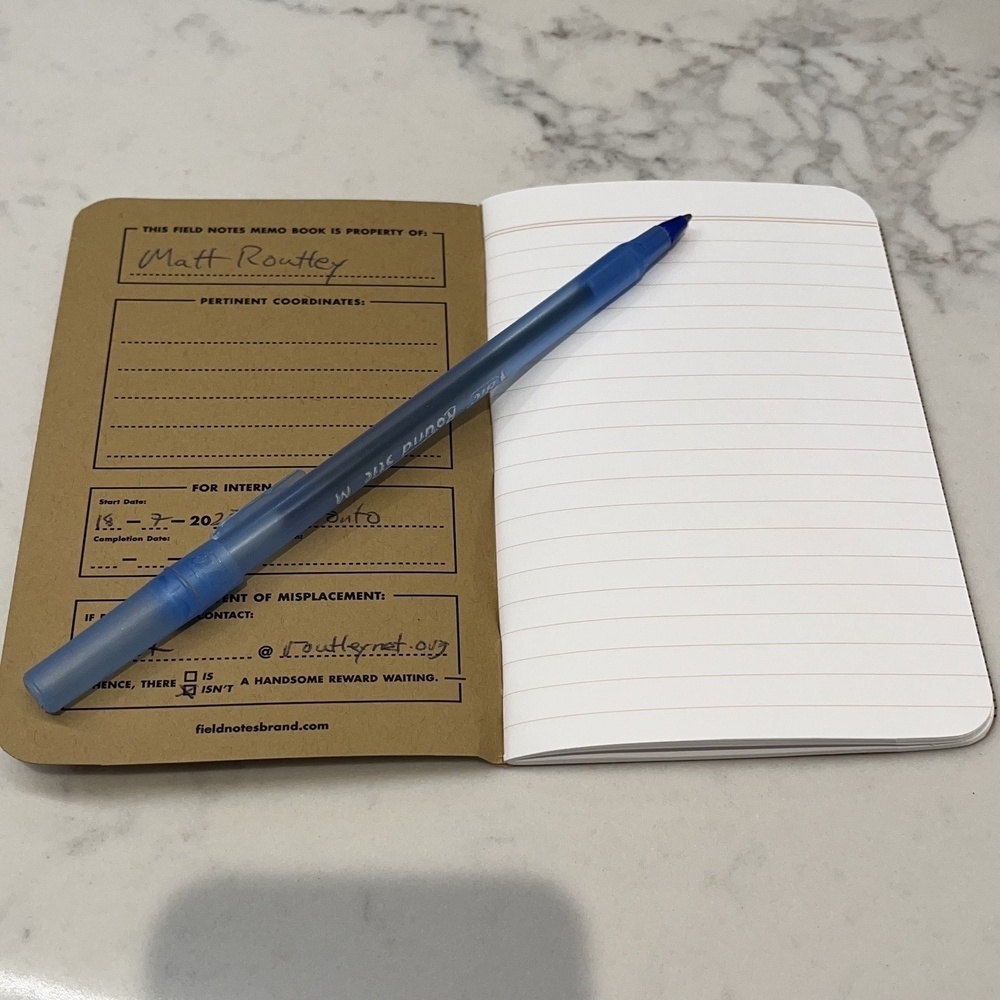 THIS FIELD NOTES MEMO BOOK IS PROPERTY OF:
Matt Routley
PERTINENT COORDINATES:
FOR INTERN
Start Date:
18 - 7 - 202 onto
Completion Date:
- -
ENT OF MISPLACEMENT:
IF CONTACT:
@ routleynet.org
HENCE, THERE IS
ISN'T A HANDSOME REWARD WAITING.
fieldnotesbrand.com
Round Stic M